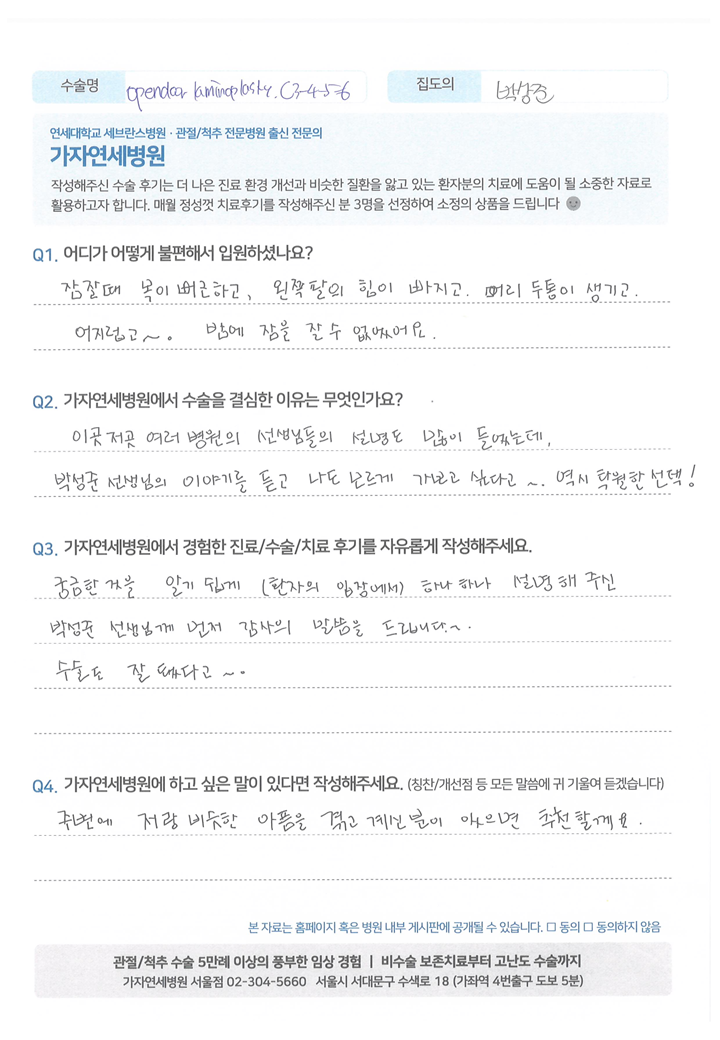 수술명 opendoor laminoplasty. C3-4-5-6 집도의 박성준
연세대학교 세브란스병원 · 관절/척추 전문병원 출신 전문의
가자연세병원
작성해주신 수술 후기는 더 나은 진료 환경 개선과 비슷한 질환을 앓고 있는 환자분의 치료에 도움이 될 소중한 자료로
활용하고자 합니다. 매월 정성껏 치료후기를 작성해주신 분 3명을 선정하여 소정의 상품을 드립니다
Q1. 어디가 어떻게 불편해서 입원하셨나요?
잠잘때 목이 뻐근하고, 왼쪽팔의 힘이 빠지고. 머리 두통이 생기고.
어지럽고~. 밤에 잠을 잘 수 없었어요.
Q2. 가자연세병원에서 수술을 결심한 이유는 무엇인가요?
이곳저곳 여러 병원의 선생님들의 설명도 많이 들었는데,
박성준 선생님의 이야기를 듣고 나도 모르게 가보고 싶다고 ~. 역시 탁월한 선택!
Q3. 가자연세병원에서 경험한 진료/수술/치료 후기를 자유롭게 작성해주세요.
궁금한 것을 알기 쉽게 (환자의 입장에서) 하나 하나 설명해 주신
박성준 선생님께 먼저 감사의 말씀을 드립니다.~.
수술도 잘 됐다고 ~.
Q4. 가자연세병원에 하고 싶은 말이 있다면 작성해주세요. (칭찬/개선점 등 모든 말씀에 귀 기울여 듣겠습니다)
주변에 저랑 비슷한 아픔을 겪고 계신분이 있으면 추천할께요.
본 자료는 홈페이지 혹은 병원 내부 게시판에 공개될 수 있습니다. □ 동의 □ 동의하지 않음
관절/척추 수술 5만례 이상의 풍부한 임상 경험 | 비수술 보존치료부터 고난도 수술까지
가자연세병원 서울점 02-304-5660 서울시 서대문구 수색로 18 (가좌역 4번출구 도보 5분)